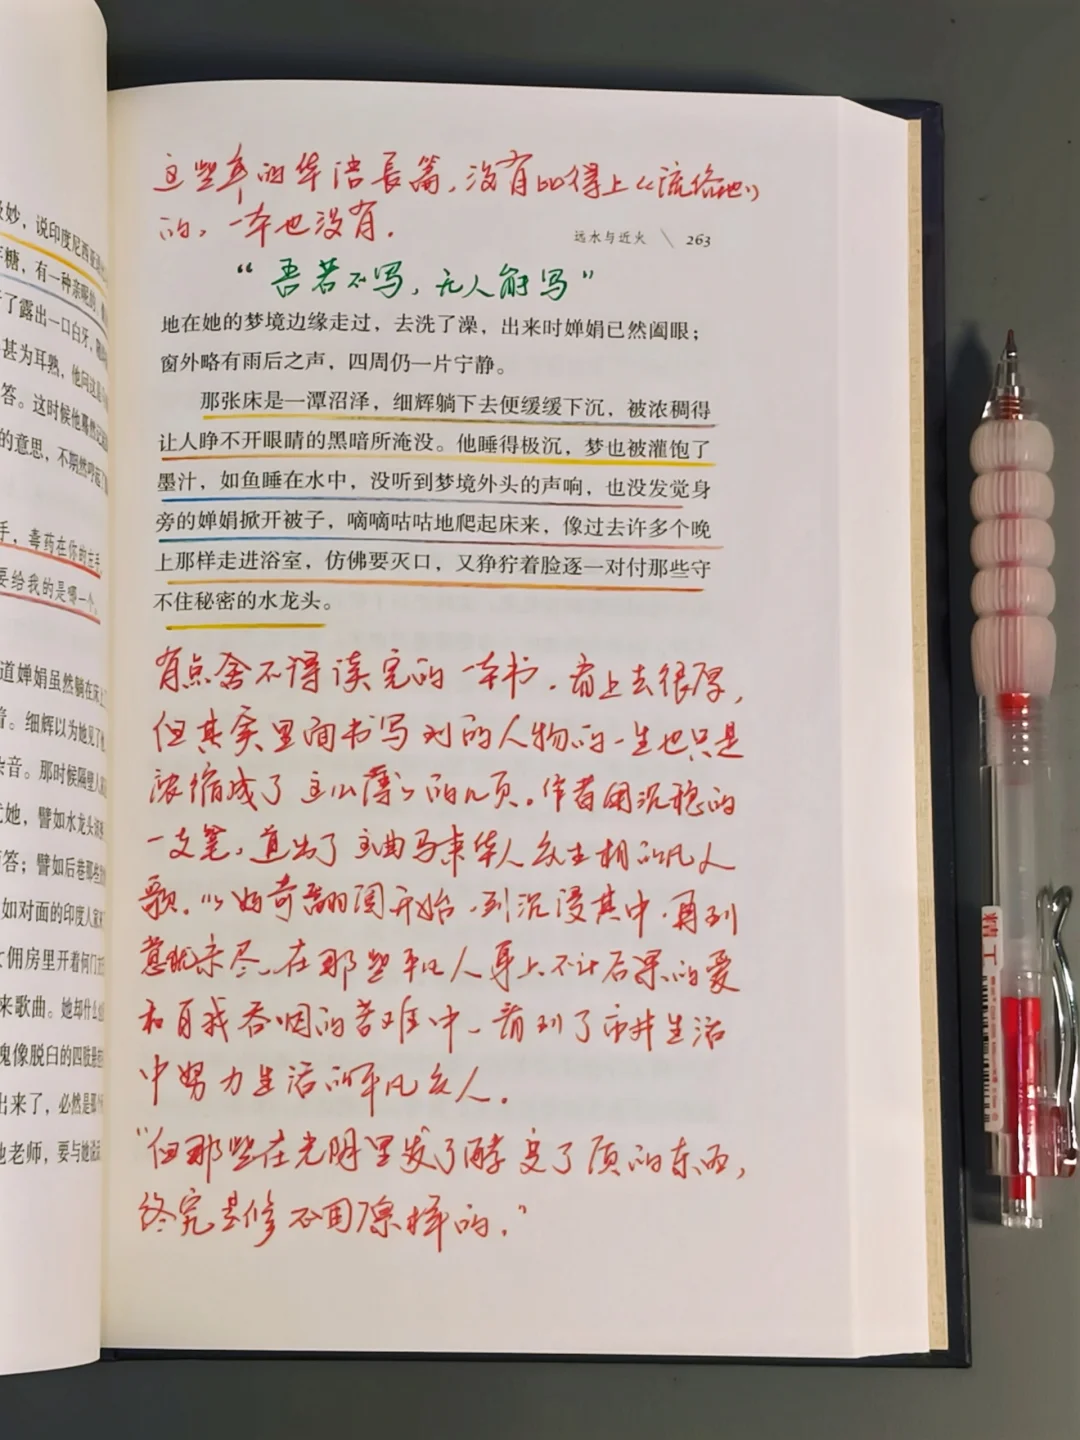 极妙，说印度尼西亚
糖，有一种亲昵的
了露出一口白牙，
甚为耳熟，他问这是
答。这时候他蓦然
的意思，不期然
手，毒药在你的左手，
要给我的是哪一个。
道婵娟虽然躺在床上
音。细辉以为她见了
杂音。那时候隔壁人家
她，譬如水龙头
答；譬如后巷那些
如对面的印度人家
女佣房里开着何门
来歌曲。她却什么
魂像脱臼的四肢
出来了，必然是那
老师，要与她说
这些年的华语长篇，没有比得上《流俗地》
的，一本也没有。
远水与近火 \ 263
“吾若不写，无人能写”
地在她的梦境边缘走过，去洗了澡，出来时婵娟已然阖眼；
窗外略有雨后之声，四周仍一片宁静。
那张床是一潭沼泽，细辉躺下去便缓缓下沉，被浓稠得
让人睁不开眼睛的黑暗所淹没。他睡得极沉，梦也被灌饱了
墨汁，如鱼睡在水中，没听到梦境外头的声响，也没发觉身
旁的婵娟掀开被子，嘀嘀咕咕地爬起床来，像过去许多个晚
上那样走进浴室，仿佛要灭口，又狰狞着脸逐一对付那些守
不住秘密的水龙头。
有点舍不得读完的一本书。看上去很厚，
但其实里面书写到的人物的一生也只是
浓缩成了这么薄薄的几页。作者用沉稳的
一支笔，道出了这曲马来华人众生相的凡人
歌。从好奇翻阅开始，到沉浸其中，再到
意犹未尽，在那些平凡人身上不计后果的爱
和自我吞咽的苦难中，看到了市井生活
中努力生活的平凡众人。
“但那些在光阴里发了酵变了质的东西，
终究是修不回原样的。”
精丁